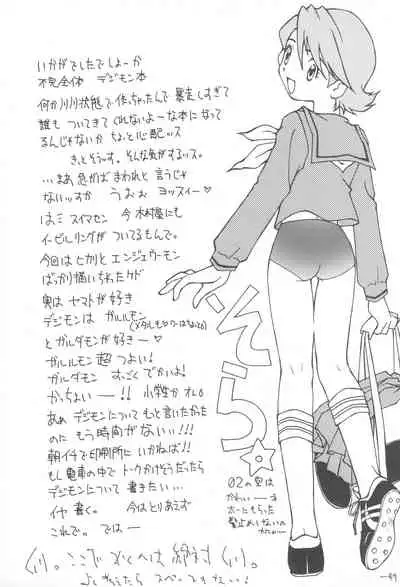 いかがでしたでしょーか
不完全体 デジモン本
何かハリハリ状態で作っちゃたんで暴走しすぎて
誰もついてきてくれないよーな本になって
るんじゃないか ちょっと心配ッス
きっとそうっす。そんな気がするッス。
…まあ 急がばまわれと言うじゃ
ないッすか うおぉ ヨッスィー♡
はミ スイマセン 今 木村屋にも
イービルリングがついてるもんで。
今回は ヒカリと エンジェウーモン
ばっかり描いちゃたケド
実は ヤマトが好き
デジモンは ガルルモン
とガルダモンが好きー♡
ガルルモン 超 つよい!
ガルダモン すっごく でかいよ!
かっちょいー!! 小学生か オレ。
あぁ デジモンについて もっと言いたかった
のに もう時間がない!!!
朝イチで印刷所に いかねば!!
もし 電車の中で トークかけそうだったら
デジモンについて 書きたい…
イヤ 書く。 今は とりあえず
これで。 では—
そら☆
02の空は
かわいーよ
99